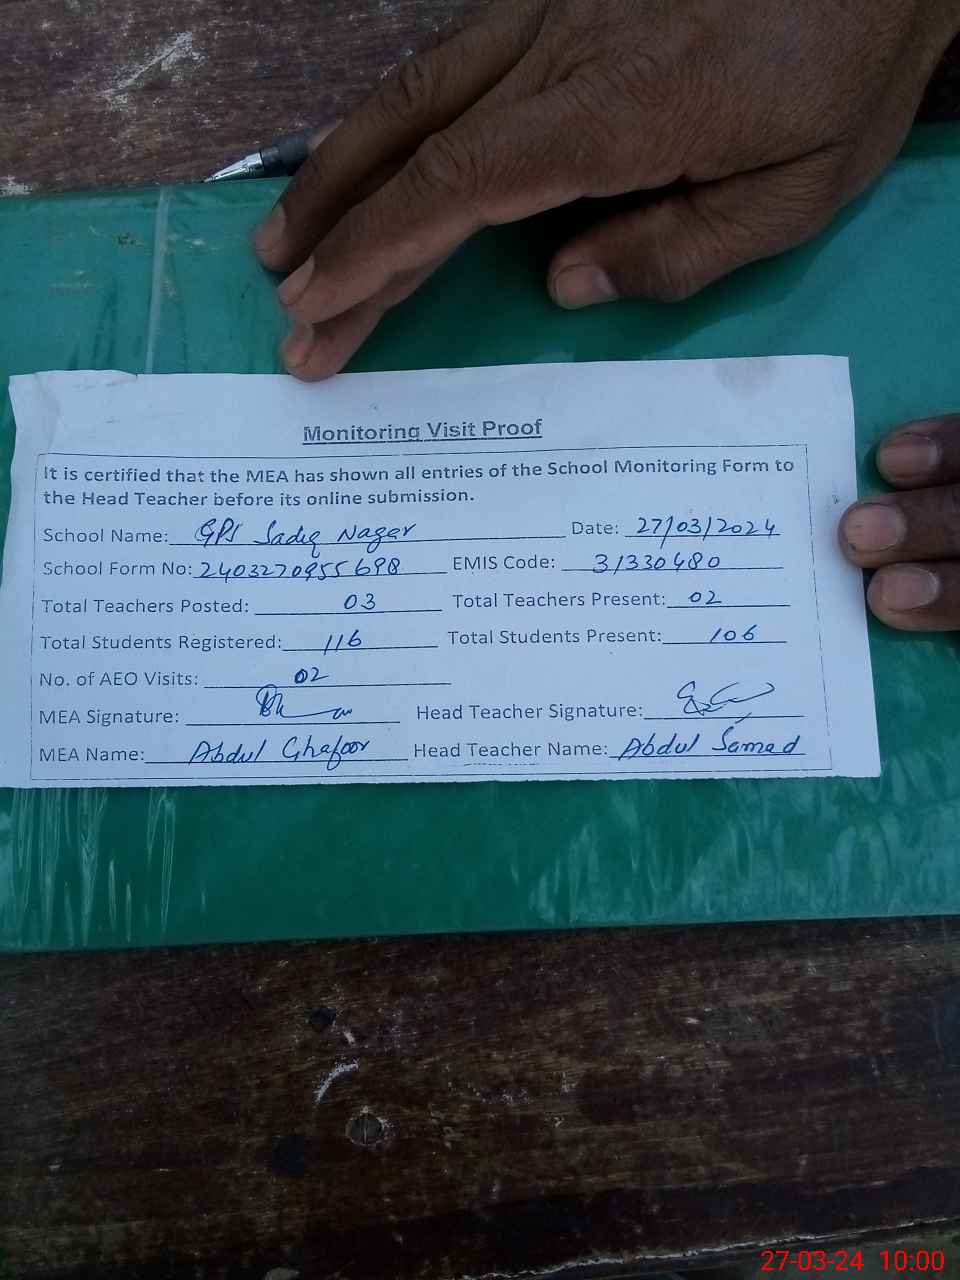 Monitoring Visit Proof
It is certified that the MEA has shown all entries of the School Monitoring Form to
the Head Teacher before its online submission.
School Name: GPS Sadiq Nagar Date: 27/03/2024
School Form No: 2403270955698 EMIS Code: 31330480
Total Teachers Posted: 03 Total Teachers Present: 02
Total Students Registered: 116 Total Students Present: 106
No. of AEO Visits: 02
MEA Signature: Head Teacher Signature:
MEA Name: Abdul Ghafoor Head Teacher Name: Abdul Samad
27-03-24 10:00